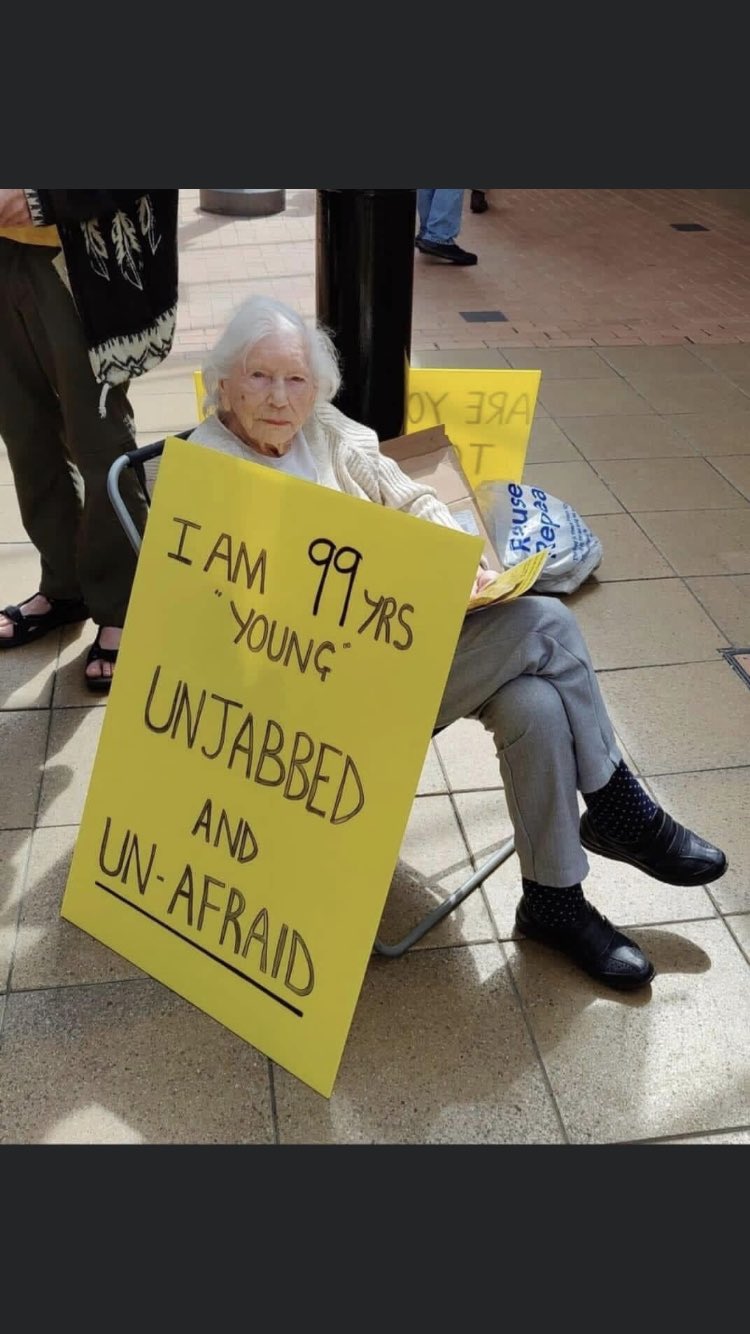 I AM 99 YRS
"YOUNG"
UNJABBED
AND
UN-AFRAID
ARE YO
T
Reuse
Repea